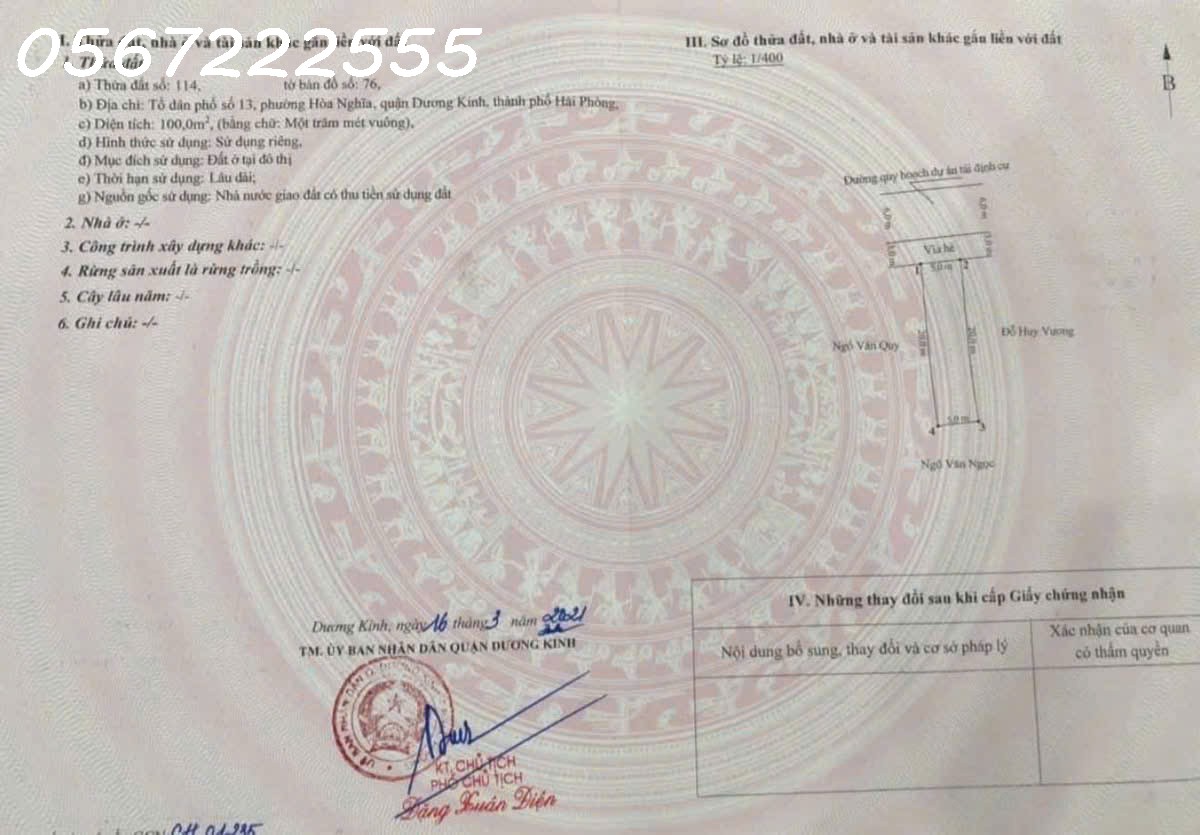 0567222555
II. Thửa đất, nhà ở và tài sản khác gắn liền với đất
1. Thửa đất
a) Thửa đất số: 114, tờ bản đồ số: 76,
b) Địa chỉ: Tổ dân phố số 13, phường Hòa Nghĩa, quận Dương Kinh, thành phố Hải Phòng,
c) Diện tích: 100,0m², (bằng chữ: Một trăm mét vuông),
d) Hình thức sử dụng: Sử dụng riêng,
đ) Mục đích sử dụng: Đất ở tại đô thị
e) Thời hạn sử dụng: Lâu dài;
g) Nguồn gốc sử dụng: Nhà nước giao đất có thu tiền sử dụng đất
2. Nhà ở: -/-
3. Công trình xây dựng khác: -/-
4. Rừng sản xuất là rừng trồng: -/-
5. Cây lâu năm: -/-
6. Ghi chú: -/-
III. Sơ đồ thửa đất, nhà ở và tài sản khác gắn liền với đất
Tỷ lệ: 1/400
B
Đường quy hoạch dự án tái định cư
6,0 m
6,0 m
3,0 m
Vỉa hè
3,0 m
1
5,0 m
2
Ngô Văn Quy
20,0 m
20,0 m
Đỗ Huy Vương
4
5,0 m
3
Ngô Văn Ngọc
Dương Kinh, ngày 16 tháng 3 năm 2021
TM. ỦY BAN NHÂN DÂN QUẬN DƯƠNG KINH
KT. CHỦ TỊCH
PHÓ CHỦ TỊCH
Đặng Xuân Diện
IV. Những thay đổi sau khi cấp Giấy chứng nhận
Nội dung bổ sung, thay đổi và cơ sở pháp lý
Xác nhận của cơ quan
có thẩm quyền